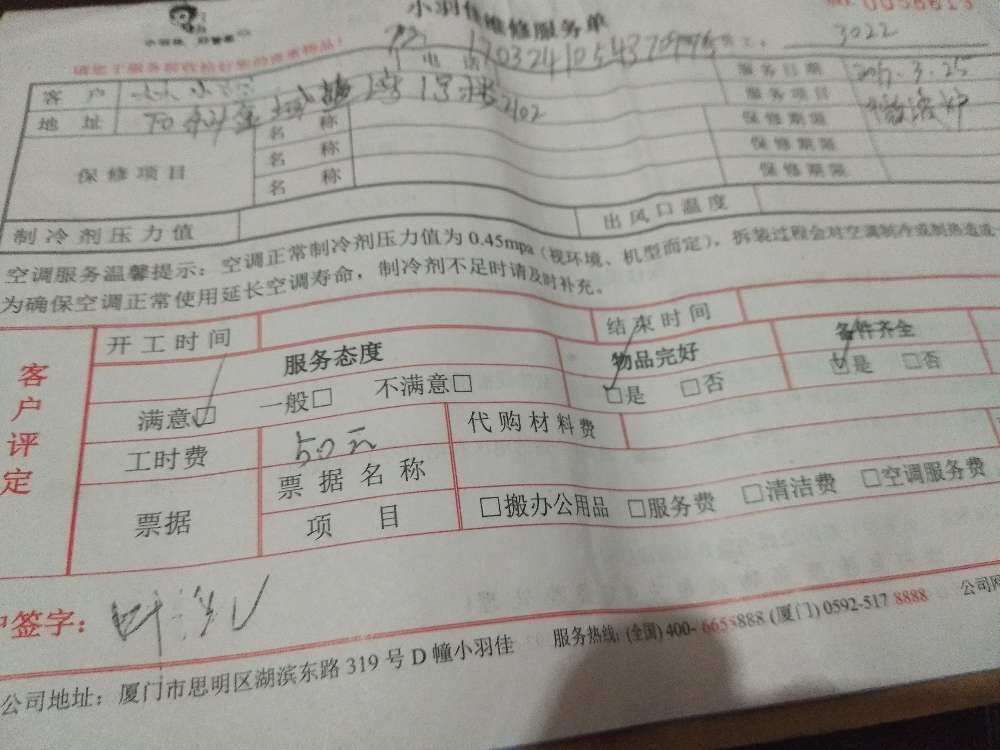 小羽佳维修服务单
3022
电话 17032410543707775
客户 服务日期 2017.3.25
地址 服务项目 微波炉
2102
保修项目 名称 保修期限
名称 保修期限
名称 保修期限
制冷剂压力值 出风口温度
空调服务温馨提示：空调正常制冷剂压力值为0.45mpa（视环境、机型而定），拆装过程会对空调制冷或制热造成一
为确保空调正常使用延长空调寿命，制冷剂不足时请及时补充。
客户评定
开工时间 结束时间
服务态度 物品完好 备件齐全
满意□ 一般□ 不满意□ □是 □否 □是 □否
工时费 50元 代购材料费
票据 票据名称
项目 □搬办公用品 □服务费 □清洁费 □空调服务费
户签字：
公司地址：厦门市思明区湖滨东路319号D幢小羽佳 服务热线：(全国) 400-6655888 (厦门) 0592-517 8888 公司网